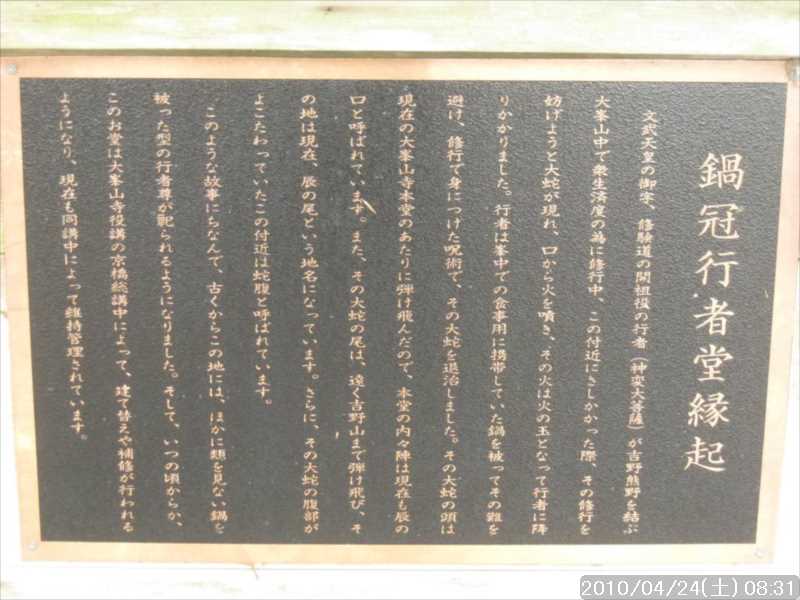 鍋冠行者堂縁起
文武天皇の御宇、修験道の開祖役の行者（神変大菩薩）が吉野熊野を結ぶ
大峯山中で衆生済度の為に修行中、この付近にさしかかった際、その修行を
妨げようと大蛇が現れ、口から火を噴き、その火は火の玉となって行者に降
りかかりました。行者は峯中での食事用に携帯していた鍋を被ってその難を
避け、修行で身につけた呪術で、その大蛇を退治しました。その大蛇の頭は
現在の大峯山寺本堂のあたりに弾け飛んだので、本堂の内々陣は現在も辰の
口と呼ばれています。また、その大蛇の尾は、遠く吉野山まで弾け飛び、そ
の地は現在、辰の尾という地名になっています。さらに、その大蛇の腹部が
よこたわっていたこの付近は蛇腹と呼ばれています。
このような故事にちなんで、古くからこの地には、ほかに類を見ない鍋を
被った型の行者尊が祀られるようになりました。そして、いつの頃からか、
このお堂は大峯山寺役講の京橋総講中によって、建て替えや補修が行われる
ようになり、現在も同講中によって維持管理されています。
2010/04/24(土) 08:31